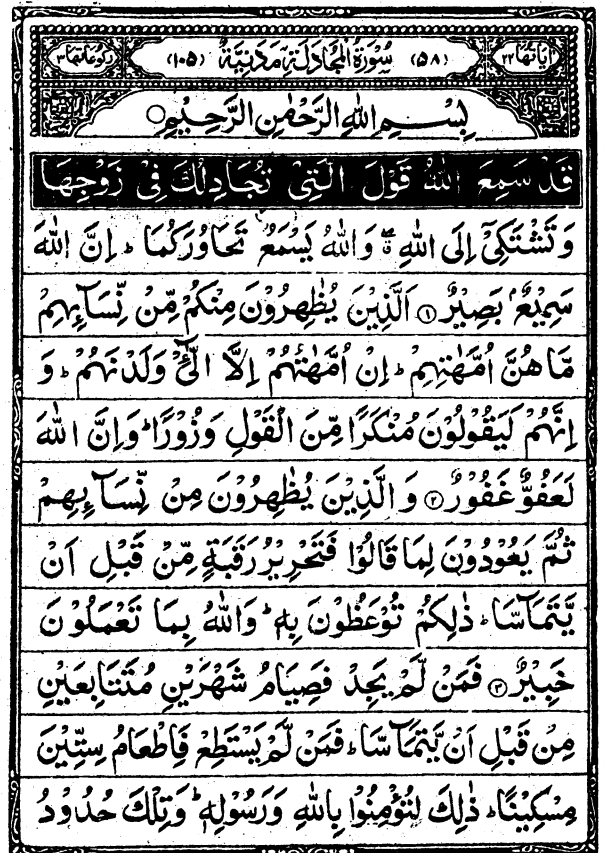 اٰيَاتُهَا ٢٢ (٥٨) سُوْرَةُ الْمُجَادَلَةِ مَدَنِيَّةٌ (١٠٥) رُكُوْعَاتُهَا ٣
بِسْمِ اللهِ الرَّحْمٰنِ الرَّحِيْمِ
قَدْ سَمِعَ اللهُ قَوْلَ الَّتِيْ تُجَادِلُكَ فِيْ زَوْجِهَا
وَتَشْتَكِيْٓ اِلَى اللهِ ۖق وَاللهُ يَسْمَعُ تَحَاوُرَكُمَا ؕ اِنَّ اللهَ
سَمِيْعٌۢ بَصِيْرٌ ۝١ اَلَّذِيْنَ يُظٰهِرُوْنَ مِنْكُمْ مِّنْ نِّسَآىِٕهِمْ
مَّا هُنَّ اُمَّهٰتِهِمْ ؕ اِنْ اُمَّهٰتُهُمْ اِلَّا الّٰٓـِٔيْ وَلَدْنَهُمْ ؕ وَ
اِنَّهُمْ لَيَقُوْلُوْنَ مُنْكَرًا مِّنَ الْقَوْلِ وَزُوْرًا ؕ وَاِنَّ اللهَ
لَعَفُوٌّ غَفُوْرٌ ۝٢ وَالَّذِيْنَ يُظٰهِرُوْنَ مِنْ نِّسَآىِٕهِمْ
ثُمَّ يَعُوْدُوْنَ لِمَا قَالُوْا فَتَحْرِيْرُ رَقَبَةٍ مِّنْ قَبْلِ اَنْ
يَّتَمَآسَّا ؕ ذٰلِكُمْ تُوْعَظُوْنَ بِهٖ ؕ وَاللهُ بِمَا تَعْمَلُوْنَ
خَبِيْرٌ ۝٣ فَمَنْ لَّمْ يَجِدْ فَصِيَامُ شَهْرَيْنِ مُتَتَابِعَيْنِ
مِنْ قَبْلِ اَنْ يَّتَمَآسَّا ؕ فَمَنْ لَّمْ يَسْتَطِعْ فَاِطْعَامُ سِتِّيْنَ
مِسْكِيْنًا ؕ ذٰلِكَ لِتُؤْمِنُوْا بِاللهِ وَرَسُوْلِهٖ ؕ وَتِلْكَ حُدُوْدُ